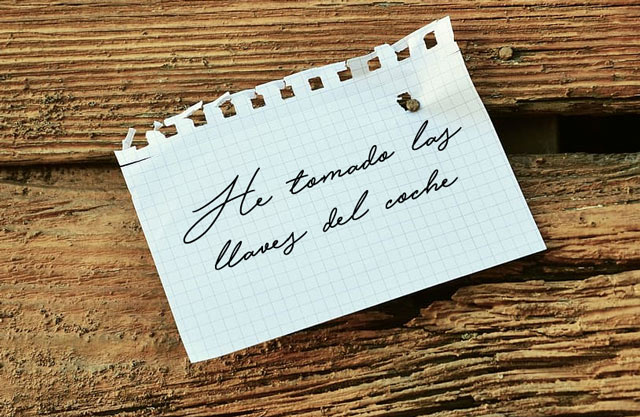 He tomado las
llaves del coche